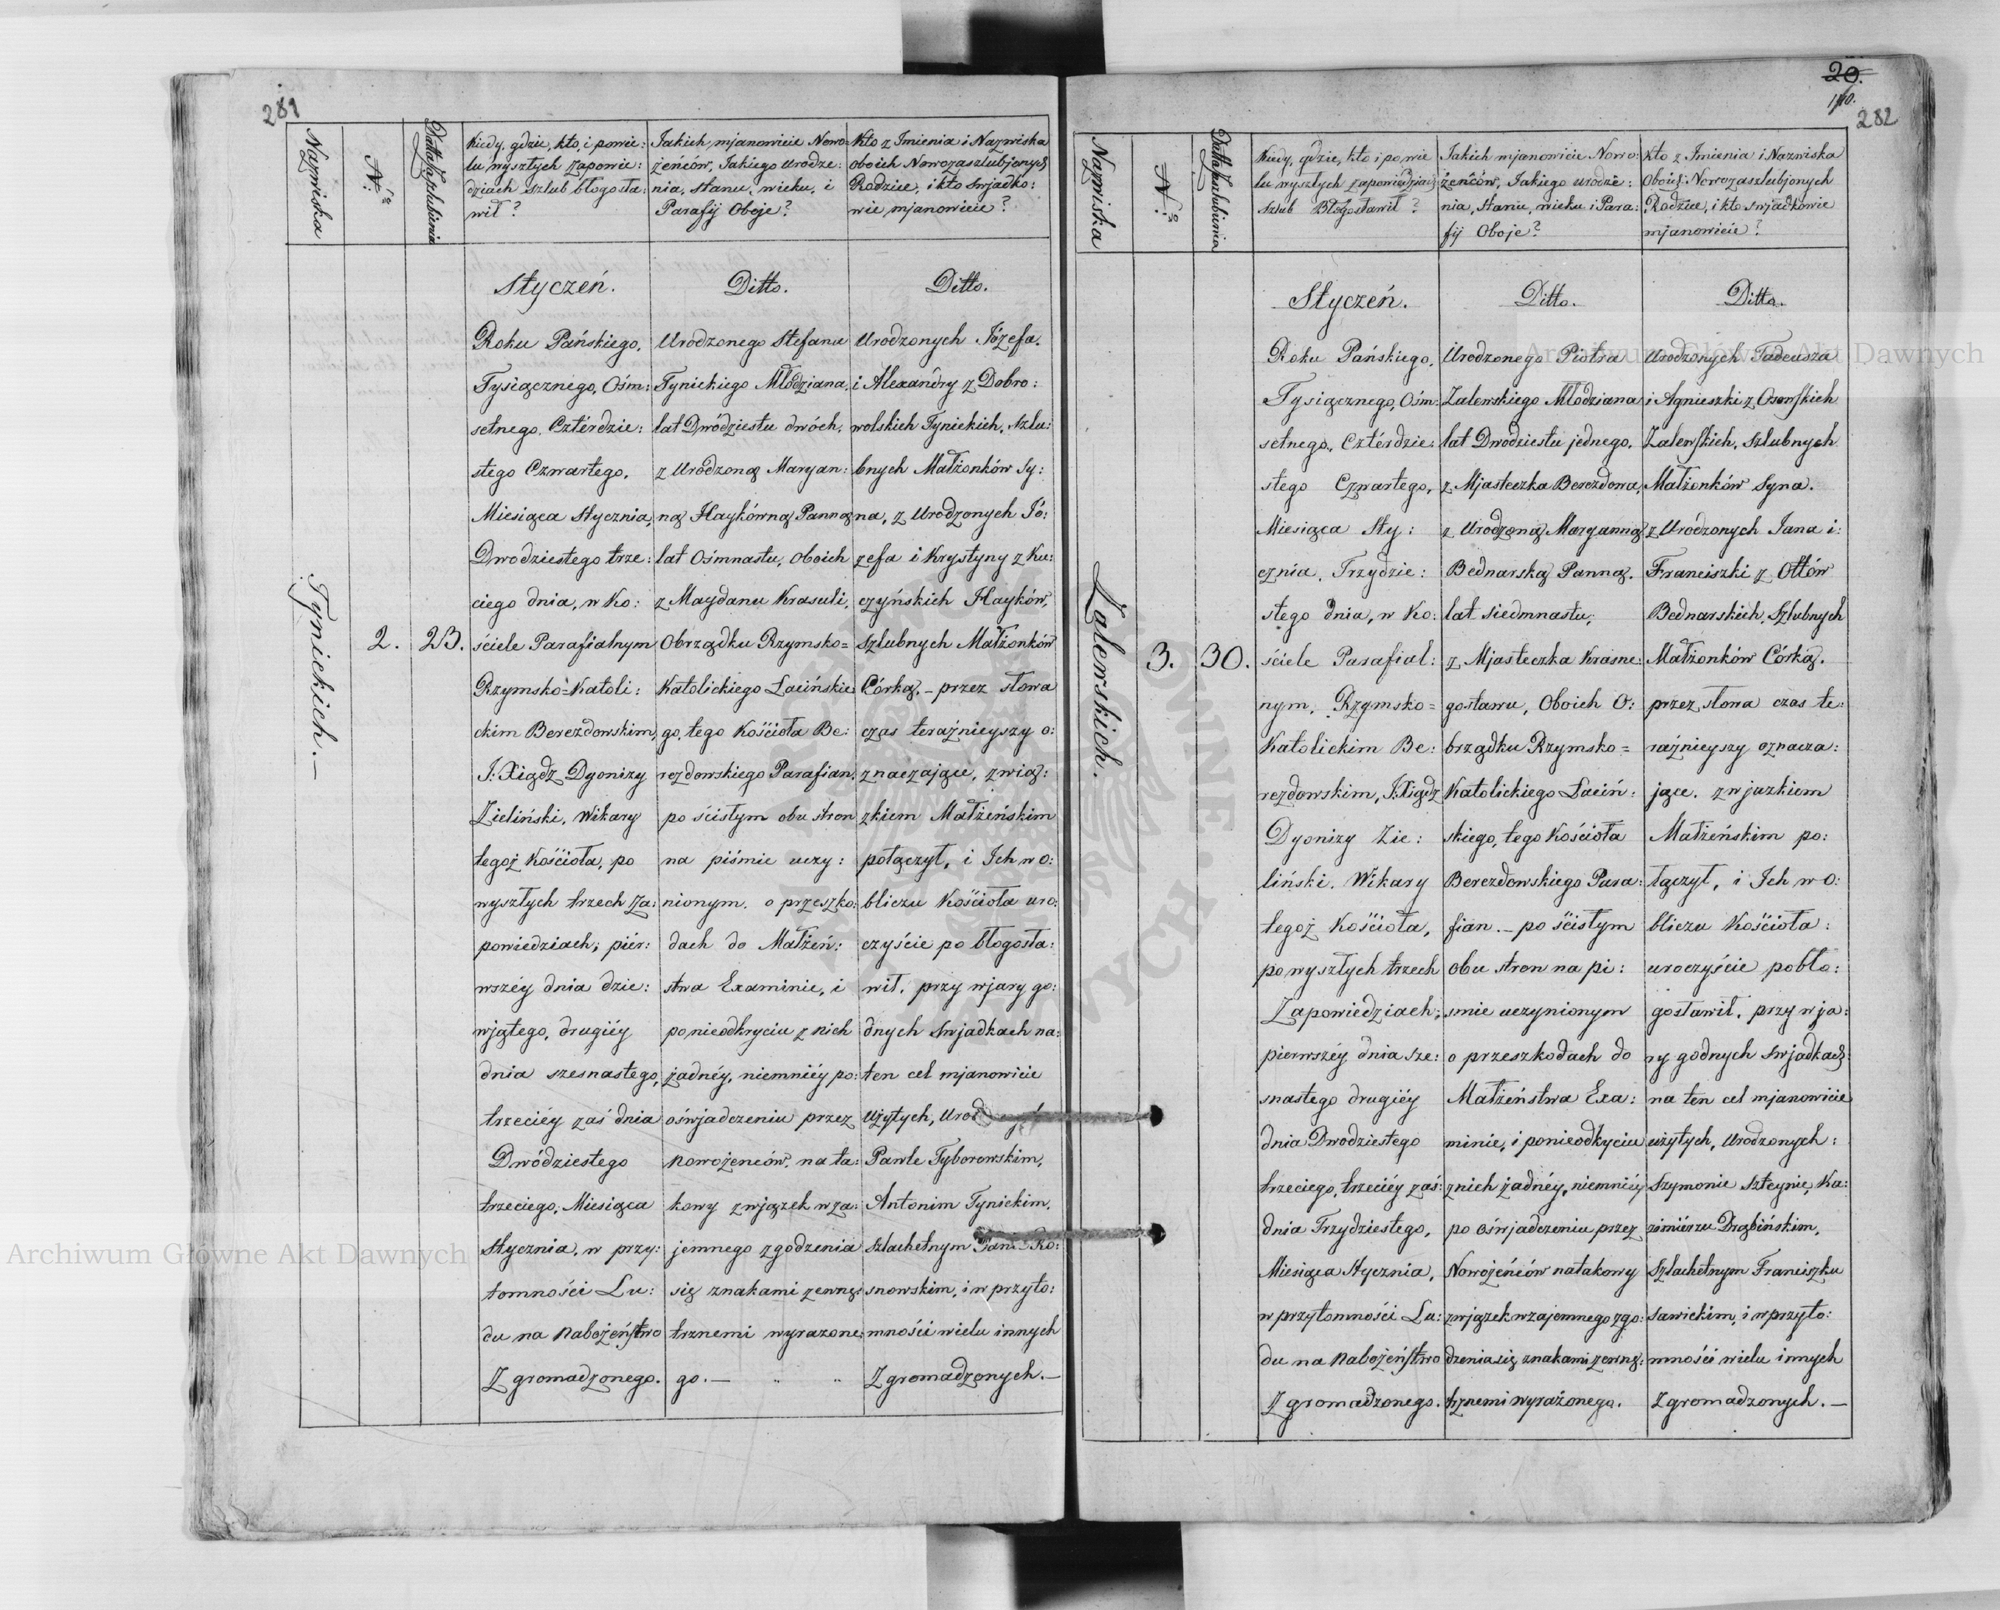 281
Nazwiska
N<sup>ro</sup>
Datta Zaślubienia
Kiedy, gdzie, kto, i powie:
lu wyszłych Zapowie:
dziach szlub błogosła:
wił?
Jakich mjanowicie Nowo:
żeńców, Jakiego urodze:
nia, stanu, wieku, i
Parafij Oboje?
Kto z Imienia i Nazwiska
oboich Nowozaszlubjonych
Rodzice, i kto swjadko:
wie mjanowicie?
Tynickich.—
2.
23.
Styczeń.
Roku Pańskiego,
Tysiącznego, Ośm:
setnego, Cztérdzie:
stego Czwartego,
Miesiąca Stycznia,
Dwodziestego trze:
ciego dnia, w Ko:
ściele Parafialnym
Rzymsko=Katoli:
ckim Berezdowskim,
J: Xiądz Dyonizy
Zieliński, Wikary
tegoż Kościoła, po
wyszłych trzech za:
powiedziach; piér:
wszéy dnia dzie:
wjątego, drugiéy
dnia szesnastego,
trzeciéy zaś dnia
Dwódziestego
trzeciego, Miesiąca
Stycznia, w przy:
tomności Lu:
du na Nabożeństwo
Zgromadzonego.
Ditto.
Urodzonego Stefana
Tynickiego Młodziana,
lat Dwódziestu dwóch,
z Urodzoną Maryan:
ną Haykówną Panną
lat Ośmnastu, Oboich
z Maydanu Krasuli,
Obrządku Rzymsko=
Katolickiego Łacińskie
go, tego Kościoła Be:
rezdowskiego Parafian,
po ścisłym obu stron
na piśmie uczy:
nionym, o przeszko:
dach do Małżeń:
stwa Examinie, i
ponieodkryciu z nich
żadnéy, niemniéy po:
oświadczeniu przez
Nowożencòw, na ta:
kowy zwjązek wza:
jemnego zgodzenia
się znakami zewnę:
trznemi wyrazone
go.—
Ditto.
Urodzonych Józefa,
i Alexandry z Dobro:
wolskich Tynickich, szlu:
bnych Małżonków Sy:
na, z Urodzonych Jó:
zefa i Krystyny z Ku:
czyńskich Hayków,
Szlubnych Małżonków
Córką,—przez słowa
czas teraźnieyszy o:
znaczające, zwią:
zkiem Małżeńskim
połączył, i Ich w o:
bliczu Kościoła uro:
czyście po błogosła:
wił, przy wjary go:
dnych Swjadkach na:
ten cel mjanowicie
Użytych, Urod
Pawle Tyborowskim,
Antonim Tynickim,
Szlachetnym Janie Ro:
snowskim, i w przyto:
mności wielu innych
Zgromadzonych.—
20.
282
Nazwiska
N<sup>ro</sup>
Datta Zaślubienia
Kiedy, gdzie, kto i po wie
lu wyszłych zapowiedziach
Szlub Błogosławił?
Jakich mjanowicie Nowo:
żeńców, Jakiego urodze:
nia, stanu, wieku i Para:
fij Oboje?
Kto z Imienia i Nazwiska
Oboich Nowozaszlubjonych
Rodzice, i kto swjadkowie
mjanowicie?
Zalewskich.
3.
30.
Styczeń.
Roku Pańskiego,
Tysiącznego, Ośm:
setnego, Cztérdzie:
stego Czwartego,
Miesiąca Sty:
cznia, Trzydzie:
stego dnia, w Ko:
ściele Parafial:
nym, Rzymsko=
Katolickim Be:
rezdowskim, J: Xiądz
Dyonizy Zie:
liński, Wikary
tegoż Kościoła,
po wyszłych trzech
Zapowiedziach;
pierwszéy dnia sze:
snastego drugiéy
dnia Dwodziestego
trzeciego, trzeciéy zaś:
dnia Trzydziestego,
Miesiąca Stycznia,
w przytomności Lu:
du na Nabożeństwo
Zgromadzonego.
Ditto.
Urodzonego Piotra
Zalewskiego Młodziana
lat Dwodziestu jednego,
z Mjasteczka Berezdowa,
z Urodzoną Maryanną
Bednarską Panną,
lat siedmnastu,
z Mjasteczka Krasne:
gostawu, Oboich O:
brządku Rzymsko=
Katolickiego Łaciń:
skiego, tego Kościoła
Berezdowskiego Para:
fian.—po ścisłym
obu stron na pi:
smie uczynionym
o przeszkodach do
Małżeństwa Exa:
minie, i ponieodkyciu
z nich żadnéy, niemniéy
po Oświadczeniu przez
Nowożeńców natakowy
zwjązek wzajemnego zgo:
dzenia się znakami zewnę:
trznemi wyrażonego.
Ditto.
Urodzonych Tadeusza
i Agnieszki z Osowskich
Zalewskich, szlubnych
Małżonków Syna,
z Urodzonych Jana i:
Franciszki z Ottów
Bednarskich, Szlubnych
Małżonków Córką,
przez słowa czas te:
raźnieyszy oznacza:
jące, zwjązkiem
Małżeńskim po:
łączył, i Ich w o:
bliczu Kościoła:
uroczyście pobło:
gosławił, przy wja:
ry godnych Swjadkach
na ten cel mjanowicie
użytych, Urodzonych:
Szymonie Szteynie, Ka:
zimierzu Drabińskim,
Szlachetnym Franciszku
Sawickim, i w przyto:
mności wielu innych
Zgromadzonych.—
Archiwum Główne Akt Dawnych
Archiwum Główne Akt Dawnych